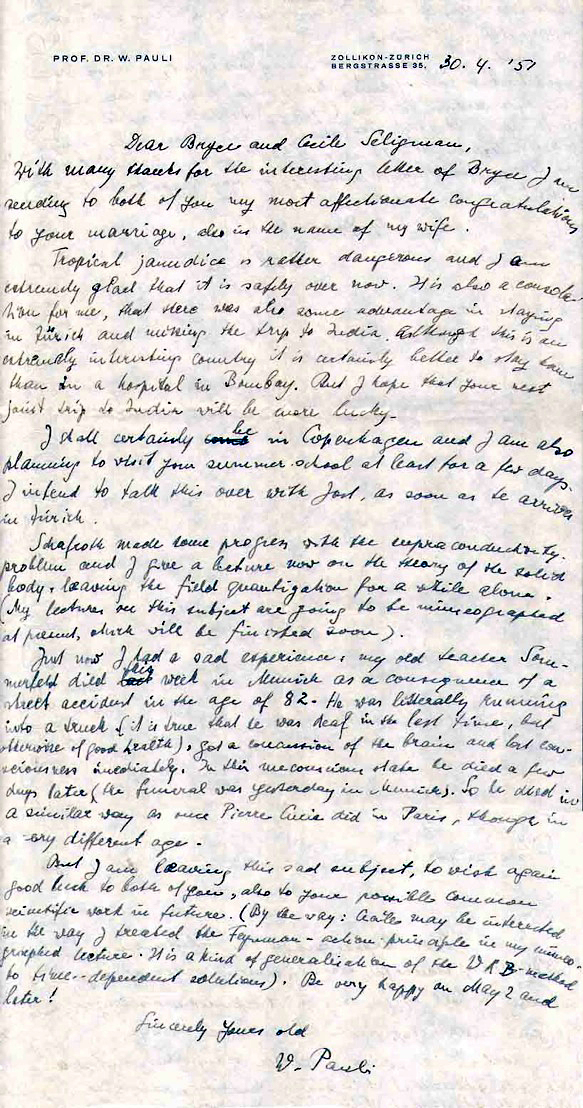 PROF. DR. W. PAULI
ZOLLIKON-ZÜRICH
BERGSTRASSE 35.
30. 4. '51
Dear Bryce and Cécile Seligman,
With many thanks for the interesting letter of Bryce I am
sending to both of you my most affectionate congratulations
to your marriage, also in the name of my wife.
Tropical jaundice is rather dangerous and I am
extremely glad that it is safely over now. It is also a consola-
tion for me, that there was also some advantage in staying
in Zürich and missing the trip to India. Although this is an
extremely interesting country it is certainly better to stay here
than in a hospital in Bombay. But I hope that your next
joint trip to India will be more lucky.
I shall certainly be in Copenhagen and I am also
planning to visit your summer-school at least for a few days.
I intend to talk this over with Jost, as soon as he arrives
in Zürich.
Schafroth made some progress with the supraconductivity-
problem and I give a lecture now on the theory of the solid
body, leaving the field quantization for a while alone.
(My lectures on this subject are going to be mimeographed
at present, which will be finished soon).
Just now I had a sad experience: my old teacher Som-
merfeld died this week in Munich as a consequence of a
street accident in the age of 82. He was litterally running
into a truck (it is true that he was deaf in the last time, but
otherwise of good health), got a concussion of the brain and lost con-
sciousness imediately. In this unconscious state he died a few
days later (the funeral was yesterday in Munich). So he died in
a similar way as once Pierre Curie did in Paris, though in
a very different age.
But I am leaving this sad subject, to wish again
good luck to both of you, also to your possible common
scientific work in future. (By the way: Cécile may be interested
in the way I treated the Feynman-action-principle in my mimeo-
graphed lecture. It is a kind of generalisation of the WKB-method
to time-dependent solutions). Be very happy on May 2 and
later!
Sincerely Yours old
W. Pauli